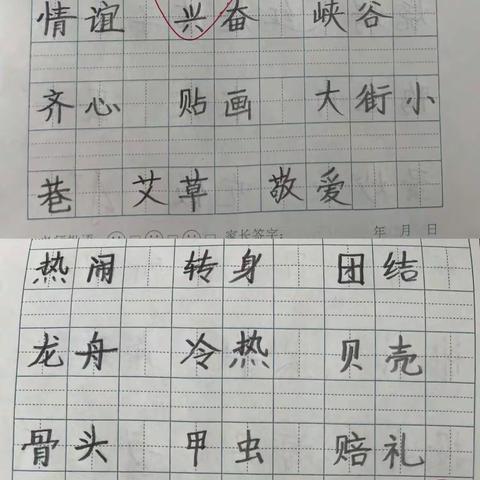 情谊 兴奋 峡谷
齐心 贴画 大街小
巷 艾草 敬爱
家长签字： 年 月 日
热闹 转身 团结
龙舟 冷热 贝壳
骨头 甲虫 赔礼